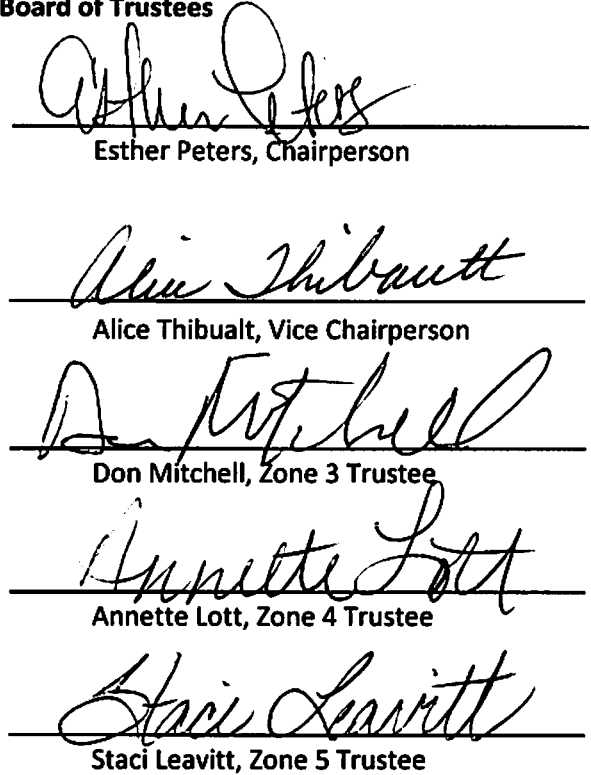 Board of Trustees
Esther Peters
Esther Peters, Chairperson
Alice Thibault
Alice Thibualt, Vice Chairperson
Don Mitchell
Don Mitchell, Zone 3 Trustee
Annette Lott
Annette Lott, Zone 4 Trustee
Staci Leavitt
Staci Leavitt, Zone 5 Trustee